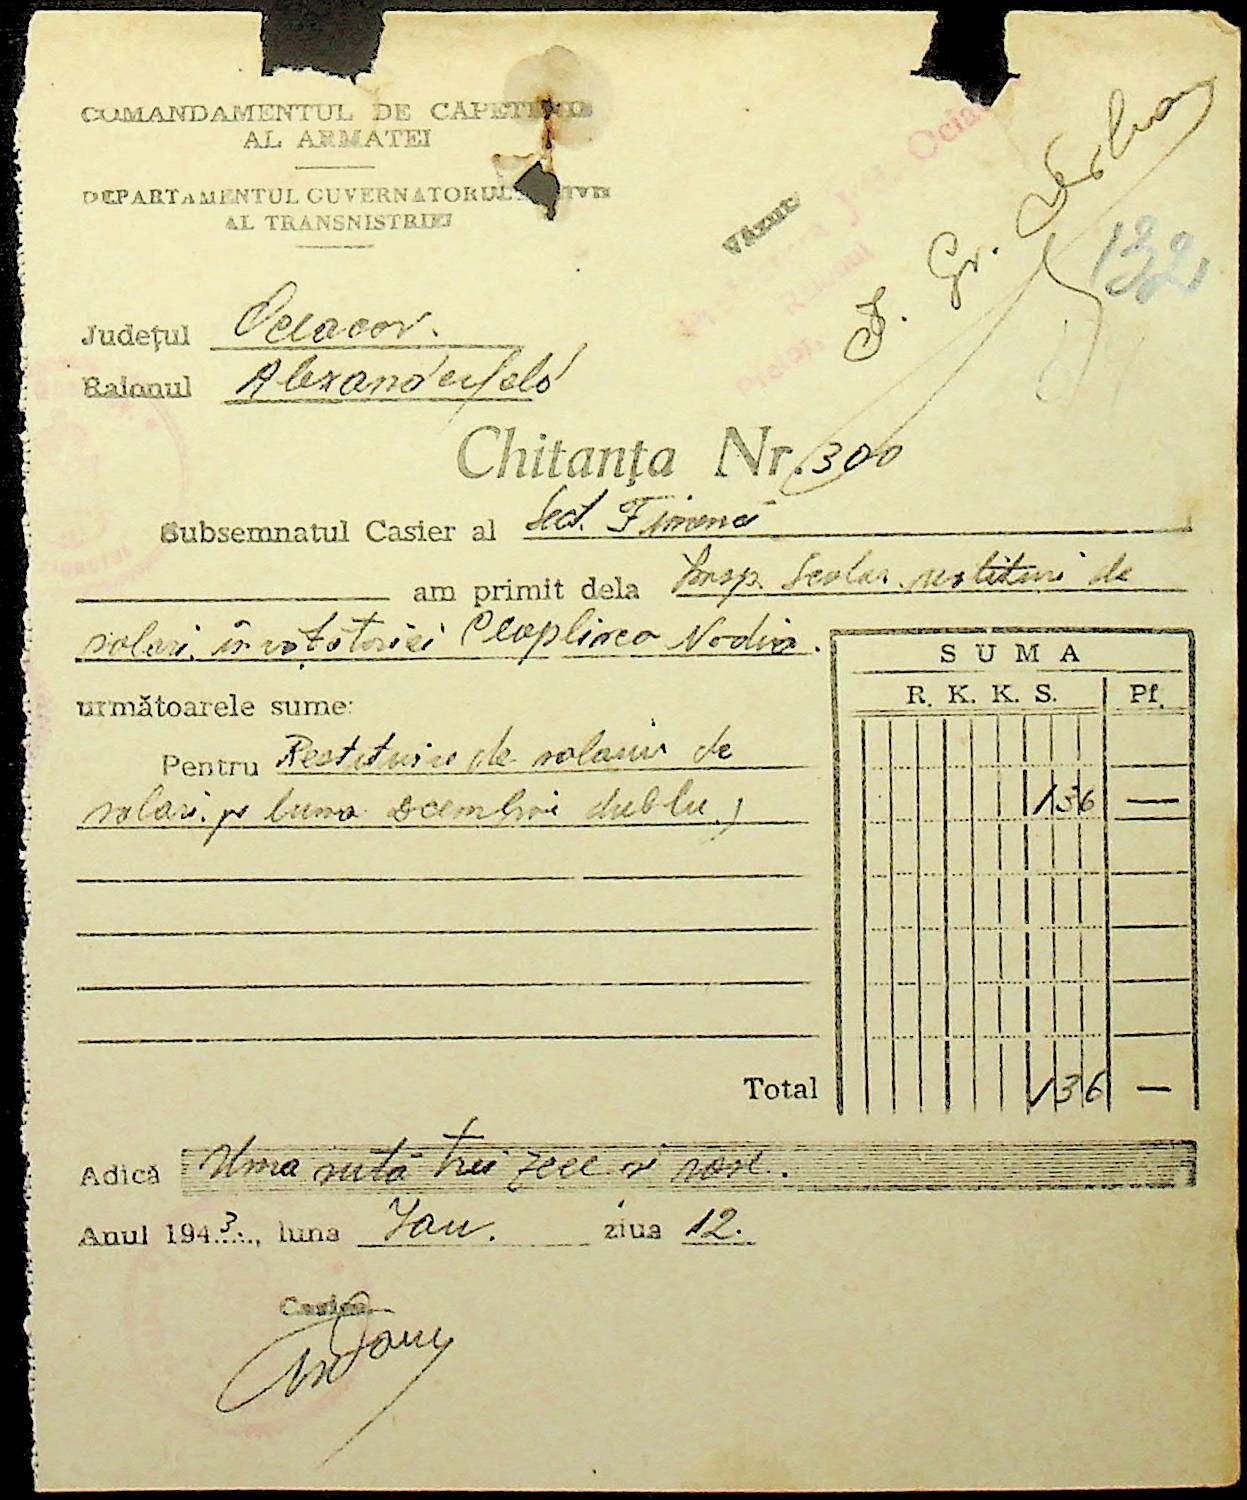 COMANDAMENTUL DE CAPETENIE
AL ARMATEI
DEPARTAMENTUL GUVERNATORULUI CIVIL
AL TRANSNISTRIEI
Văzut,
I. Gr.
132
Județul Oceacov.
Raionul Alexanderfeld
Chitanța Nr. 300
Subsemnatul Casier al Sect. Financ
am primit dela Insp. Scolar restituiri de
salari învățătoriei Nadia.
S U M A
R. K. K. S. Pf.
următoarele sume:
Pentru Restituire de salarii de
salari pe luna Decembrie dublu
136 —
Total 136 —
Adică Una sută trei zece și șase.
Anul 1943, luna Ian. ziua 12.
Casier